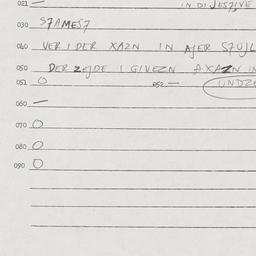 021 — IN DI JESZIVE
030 SZAMESZ
040 VER I DER XAZN IN AJER SZUJL
050 DER ZEJDE I GIVEZN A XAZN IN
051 O 052 — UNDZE
060 —
070 O
080 O
090 O